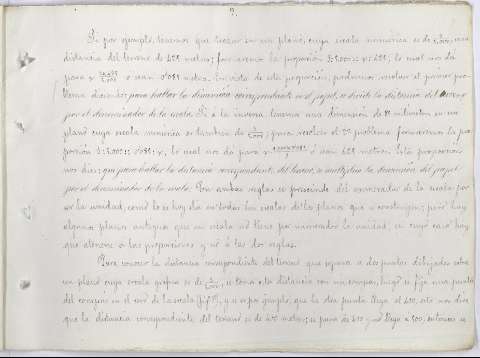 Si por ejemplo, tenemos que trazar en un plano, cuya escala numérica es de una
distancia del terreno de metros; formaremos la proporción lo cual nos da
para x o sean metros. En vista de esta proporción, podremos resolver el primer pro-
blema diciendo: para hallar la dimensión correspondiente en el papel, se divide la distancia del terreno
por el denominador de la escala. Si á la inversa tenemos una dimensión de milímetros en un
plano cuya escala numérica es también de para resolver el 2º problema formaremos la pro-
porción lo cual nos da para x ó sean metros. Esta proporción
nos dice: que para hallar la distancia correspondiente del terreno, se multiplica la dimensión del papel
por el denominador de la escala. En ambas reglas se prescinde del numerador de la escala por
ser la unidad, como lo es hoy día en todas las escalas de los planos que se construyen; pero hay
algunos planos antiguos que su escala no tiene por numerador la unidad, en cuyo caso hay
que atenerse a las proporciones y no á las dos reglas.
Para conocer la distancia correspondiente del terreno que separa a dos puntos dibujados sobre
un plano cuya escala gráfica es de se toma la distancia con un compás, luego se fija una punta
del compás en el cero de la escala y si por ejemplo, que la otra punta llega al 400, esto nos dice
que la distancia correspondiente del terreno es de 400 metros; si pasa de 400 y no llega a 500, entonces se